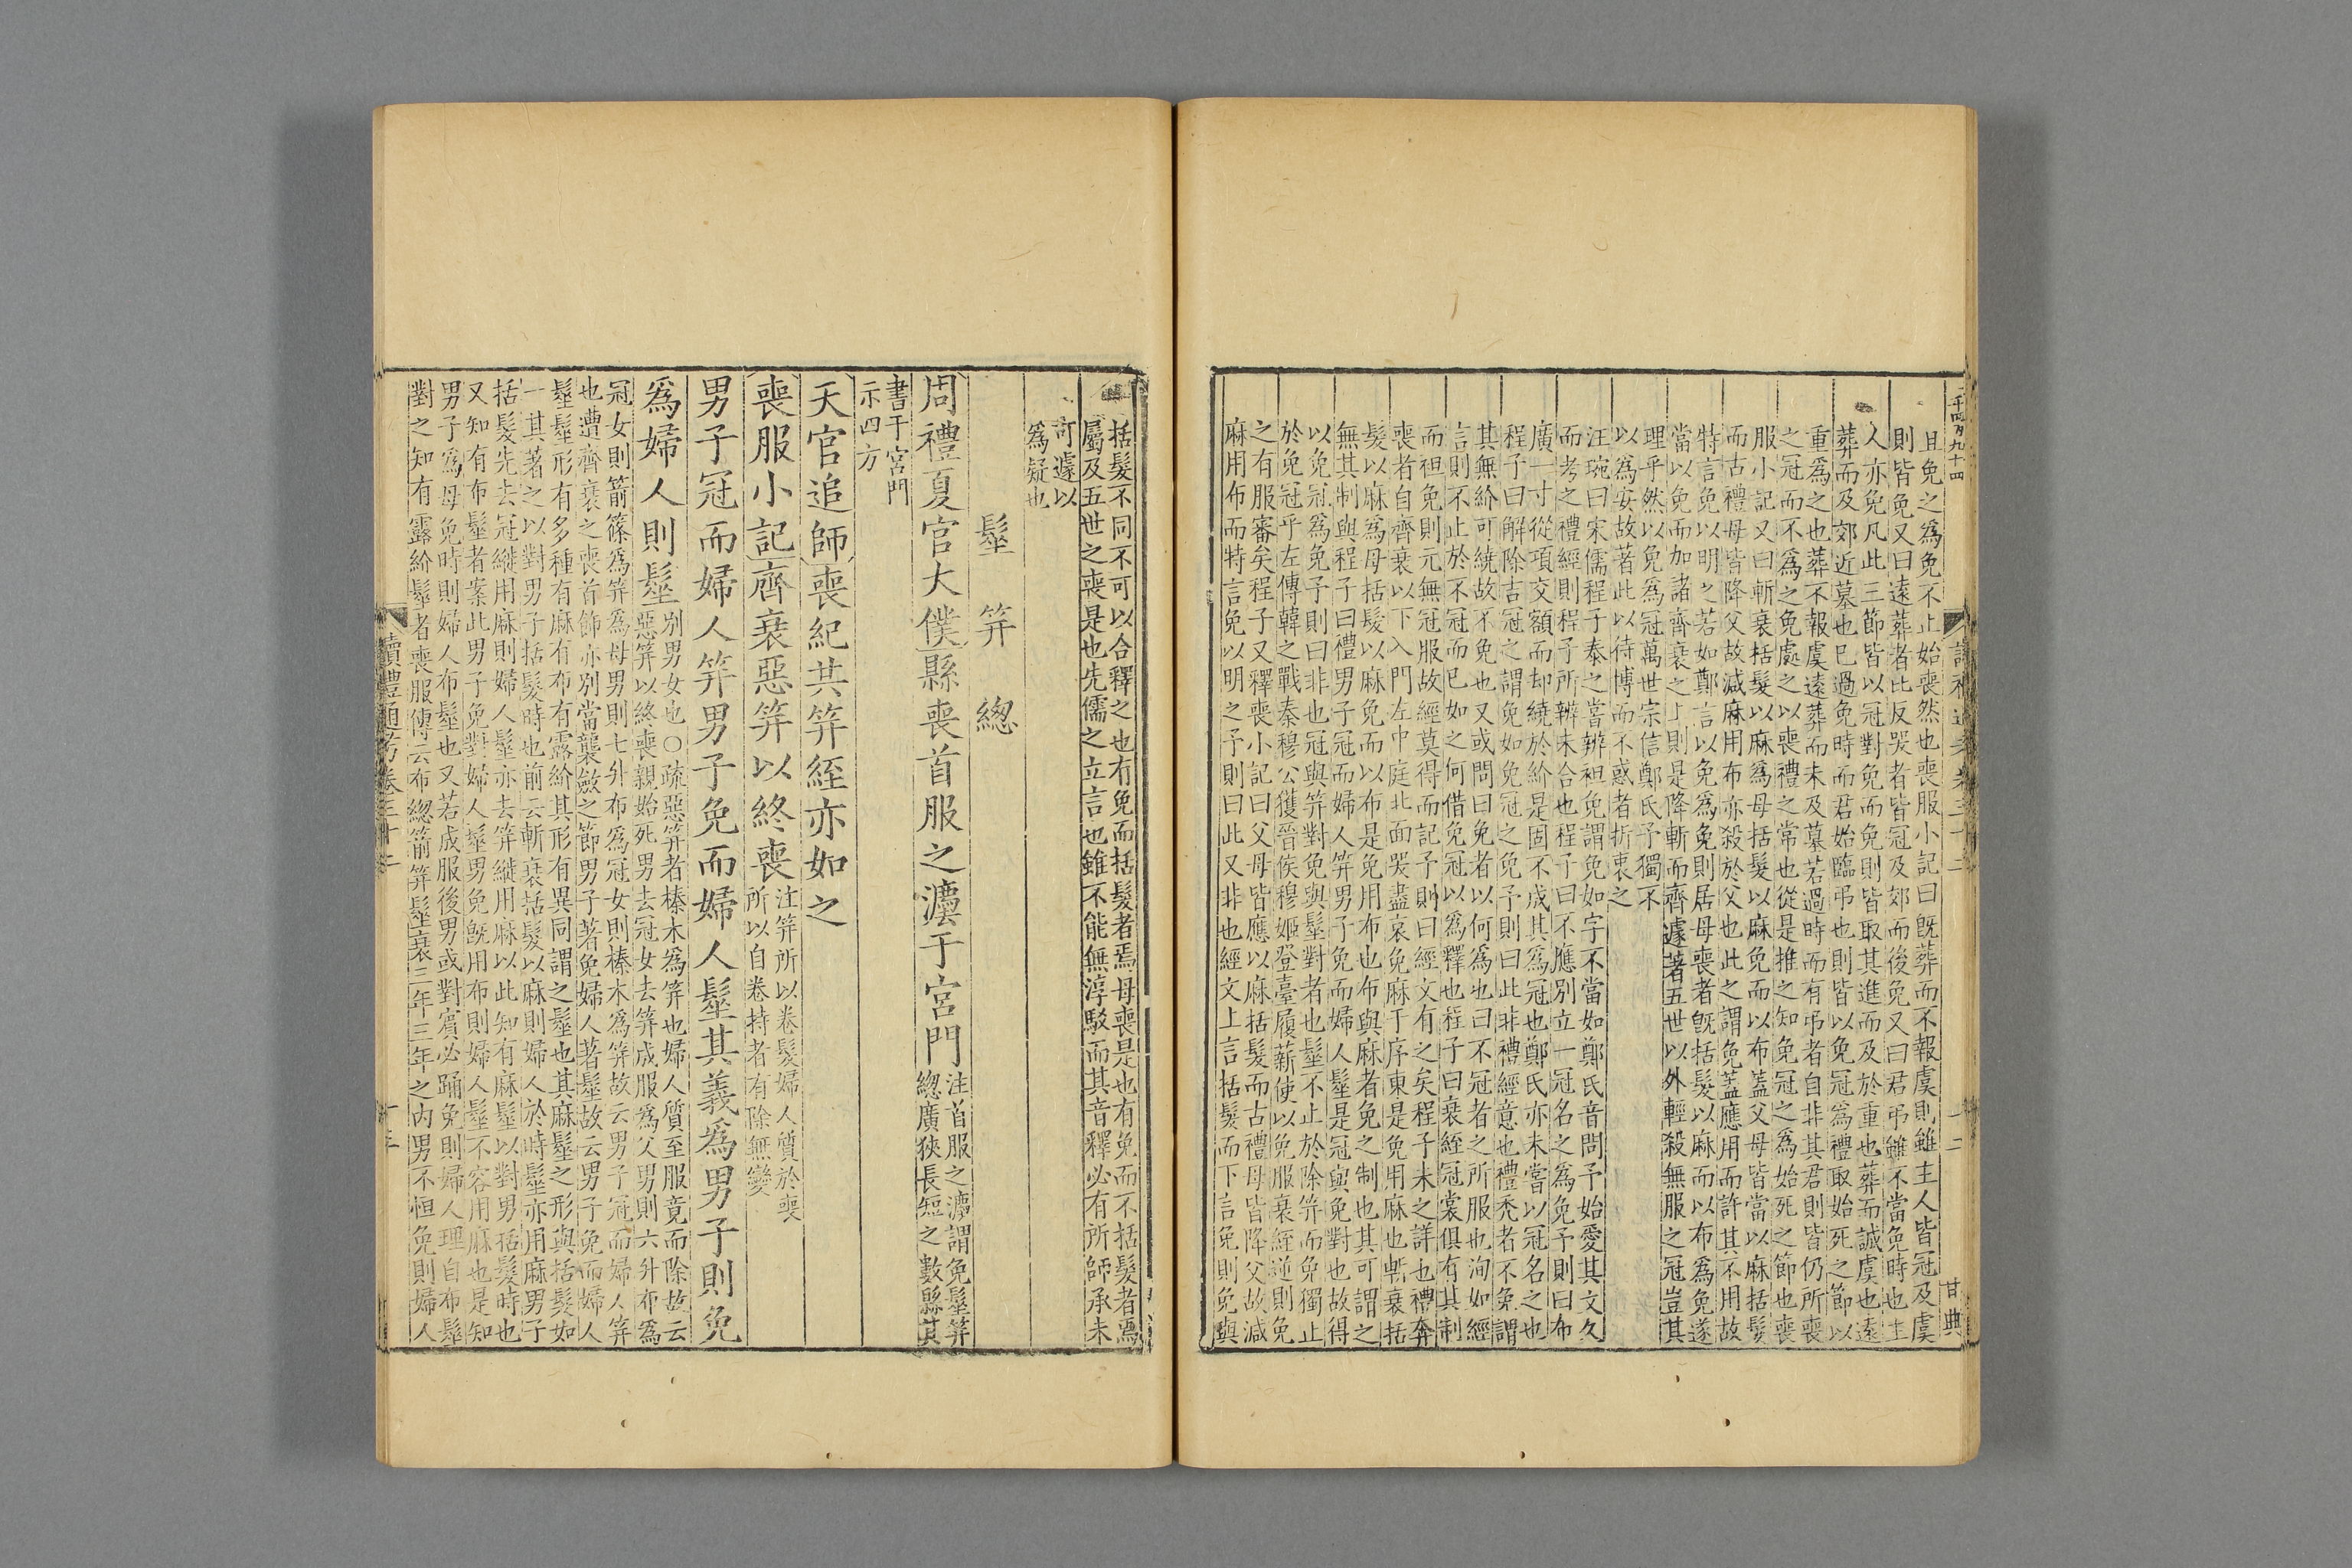 二千四百九十四
讀禮通考卷三十二
十二
甘典
且免之爲免不止始喪然也喪服小記曰旣葬而不報虞則雖主人皆冠及虞
則皆免又曰遠葬者比反哭者皆冠及郊而後免又曰君弔雖不當免時也主
人亦免凡此三節皆以冠對免而免則皆取其進而及於重也葬而誠虞也遠
葬而及郊近墓也已過免時而君始臨弔也則皆以免冠爲禮取始死之節以
重爲之也葬不報虞遠葬而未及墓若過時而有弔者自非其君則皆仍所喪
之冠而不爲之免處之以喪禮之常也從是推之知免冠之爲始死之節也喪
服小記又曰斬衰括髮以麻爲母括髮以麻免而以布蓋父母皆當以麻括髮
而古禮母皆降父故減麻用布亦殺於父也此之謂免蓋應用而許其不用故
特言免以明之若如鄭言以免爲免則居母喪者旣括髮以麻而以布爲免遂
當以免而加諸齊衰之上則是降斬而齊遽著五世以外輕殺無服之冠豈其
理乎然以免爲冠萬世宗信鄭氏予獨不
以爲安故著此以待博而不惑者折衷之
汪琬曰宋儒程子泰之嘗辨袒免謂免如字不當如鄭氏音問予始愛其文久
而考之禮經則程子所辨未合也程子曰不應別立一冠名之爲免予則曰布
廣一寸從項交額而却繞於紒是固不成其爲冠也鄭氏亦未嘗以冠名之也
程子曰解除吉冠之謂免如免冠之免予則曰此非禮經意也禮禿者不免謂
其無紒可繞故不免也又或問曰免者以何爲也曰不冠者之所服也洵如經
言則不止於不冠而已如之何借免冠以爲釋也程子曰衰絰冠裳俱有其制
而袒免則元無冠服故經莫得而記予則曰經文有之矣程子未之詳也禮奔
喪者自齊衰以下入門左中庭北面哭盡哀免麻于序東是免用麻也斬衰括
髮以麻爲母括髮以麻免而以布是免用布也布與麻者免之制也其可謂之
無其制與程子曰禮男子冠而婦人笄男子免而婦人髽是冠與免對也故得
以免冠爲免予則曰非也冠與笄對免與髽對者也髽不止於除笄而免獨止
於免冠乎左傳韓之戰秦穆公獲晉侯穆姬登臺履薪使以免服衰絰逆則免
之有服審矣程子又釋喪小記曰父母皆應以麻括髮而古禮母皆降父故減
麻用布而特言免以明之予則曰此又非也經文上言括髮而下言免則免與
括髮不同不可以合釋之也有免而括髮者焉母喪是也有免而不括髮者焉
屬及五世之喪是也先儒之立言也雖不能無淳駁而其音釋必有所師承未
可遽以
爲疑也
髽 笄 總
周禮夏官大僕縣喪首服之灋于宮門注首服之灋謂免髽笄
總廣狹長短之數縣其
書于宮門
示四方
天官追師喪紀共笄絰亦如之
喪服小記齊衰惡笄以終喪注笄所以卷髮婦人質於喪
所以自卷持者有除無變
男子冠而婦人笄男子免而婦人髽其義爲男子則免
爲婦人則髽別男女也○疏惡笄者榛木爲笄也婦人質至服竟而除故云
惡笄以終喪親始死男去冠女去笄成服爲父男則六升布爲
冠女則箭篠爲笄爲母男則七升布爲冠女則榛木爲笄故云男子冠而婦人笄
也遭齊衰之喪首飾亦別當襲斂之節男子著免婦人著髽故云男子免而婦人
髽髽形有多種有麻有布有露紒其形有異同謂之髽也其麻髽之形與括髮如
一其著之以對男子括髮時也前云斬衰括髮以麻則婦人於時髽亦用麻男子
括髮先去冠縰用麻則婦人髽亦去笄縰用麻以此知有麻髽以對男括髮時也
又知有布髽者案此男子免對婦人髽男免旣用布則婦人髽不容用麻也是知
男子爲母免時則婦人布髽也又若成服後男或對賓必踊免則婦人理自布髽
對之知有露紒髽者喪服傳云布總箭笄髽衰三年三年之內男不恒免則婦人
讀禮通考卷三十二
十三